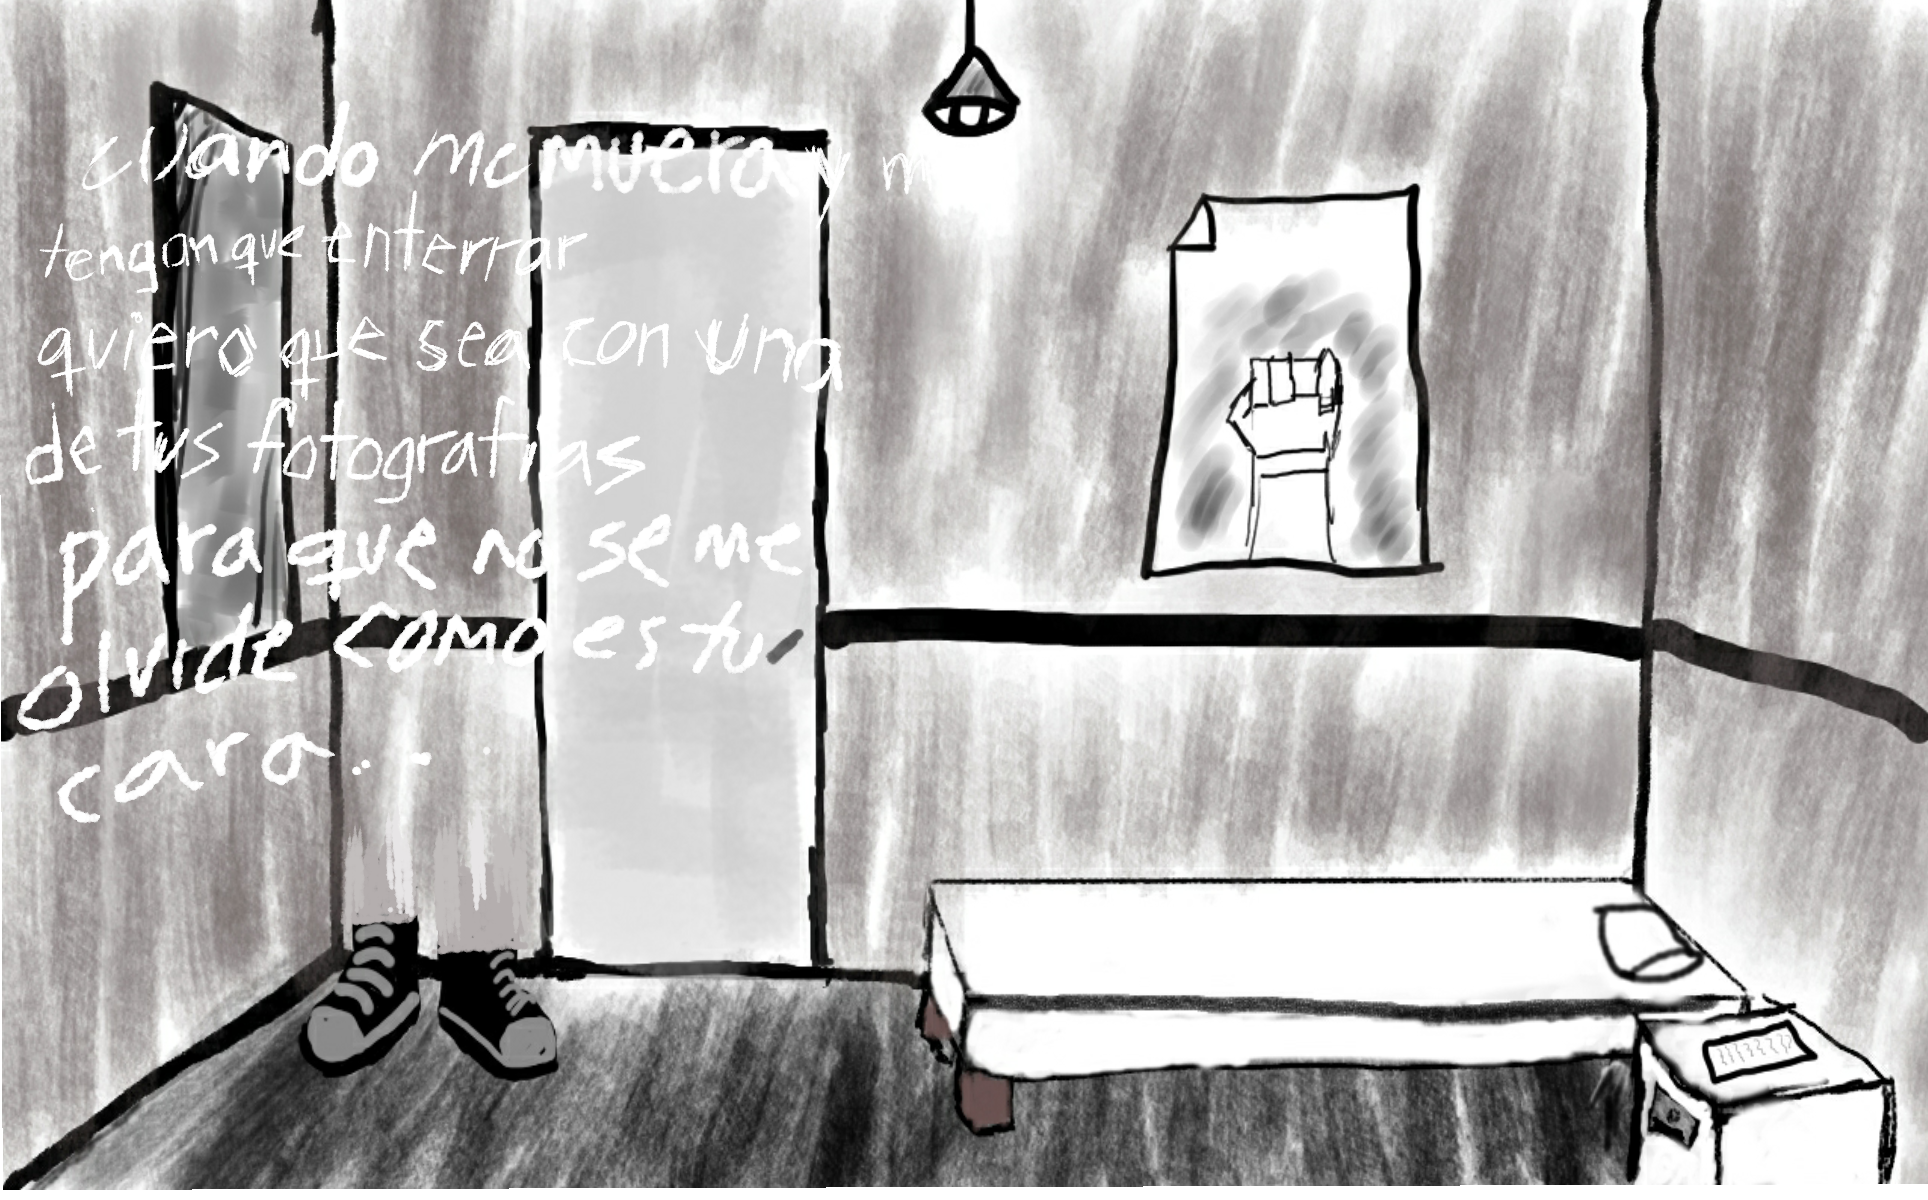 cuando me muera y m
tengan que enterrar
quiero que sea con una
de tus fotografias
para que no se me
olvide como es tu
cara...